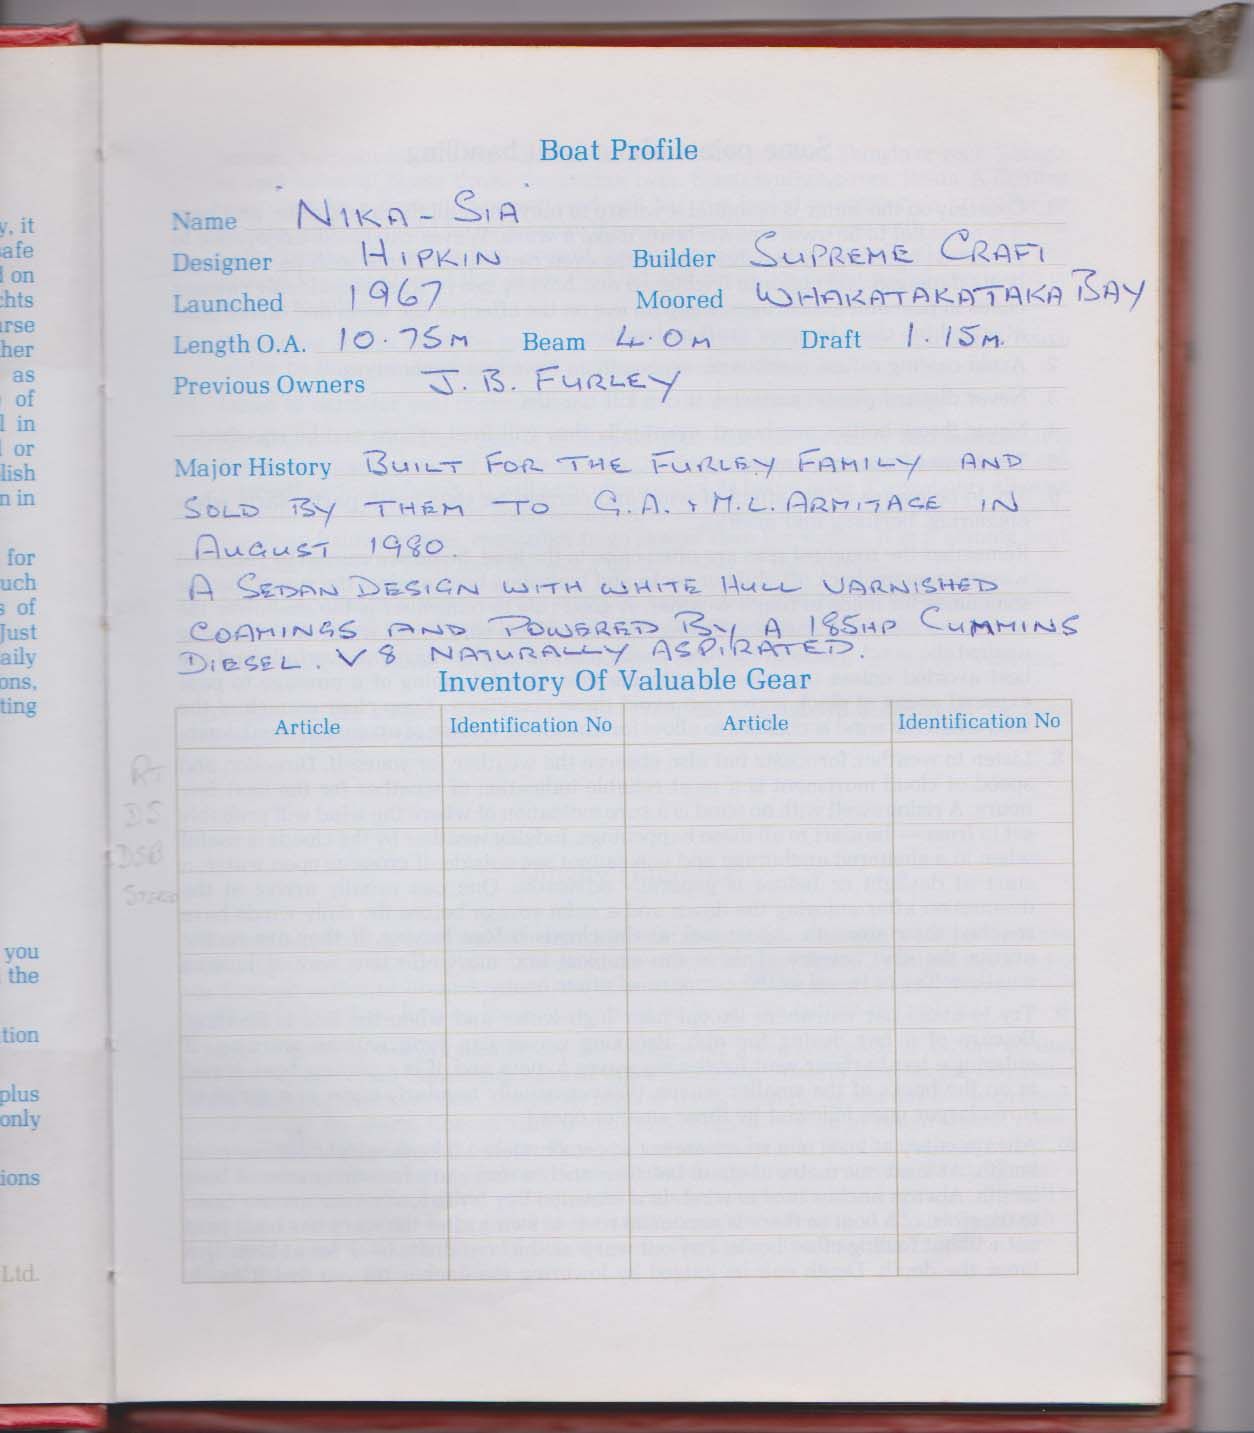 Boat Profile
Name "NIKA-SIA"
Designer HIPKIN Builder SUPREME CRAFT
Launched 1967 Moored WHAKATAKATAKA BAY
Length O.A. 10.75M Beam 4.0M Draft 1.15M.
Previous Owners J.B. FURLEY
Major History BUILT FOR THE FURLEY FAMILY AND
SOLD BY THEM TO G.A. & M.L. ARMITAGE IN
AUGUST 1980.
A SEDAN DESIGN WITH WHITE HULL VARNISHED
COAMINGS AND POWERED BY A 185HP CUMMINS
DIESEL. V8 NATURALLY ASPIRATED.
Inventory Of Valuable Gear
Article Identification No Article Identification No
DS
DSB
STEREO
y, it
safe
d on
chts
urse
ther
as
of
l in
or
lish
n in
for
uch
s of
Just
aily
ons,
ting
you
the
tion
plus
only
ions
Ltd.